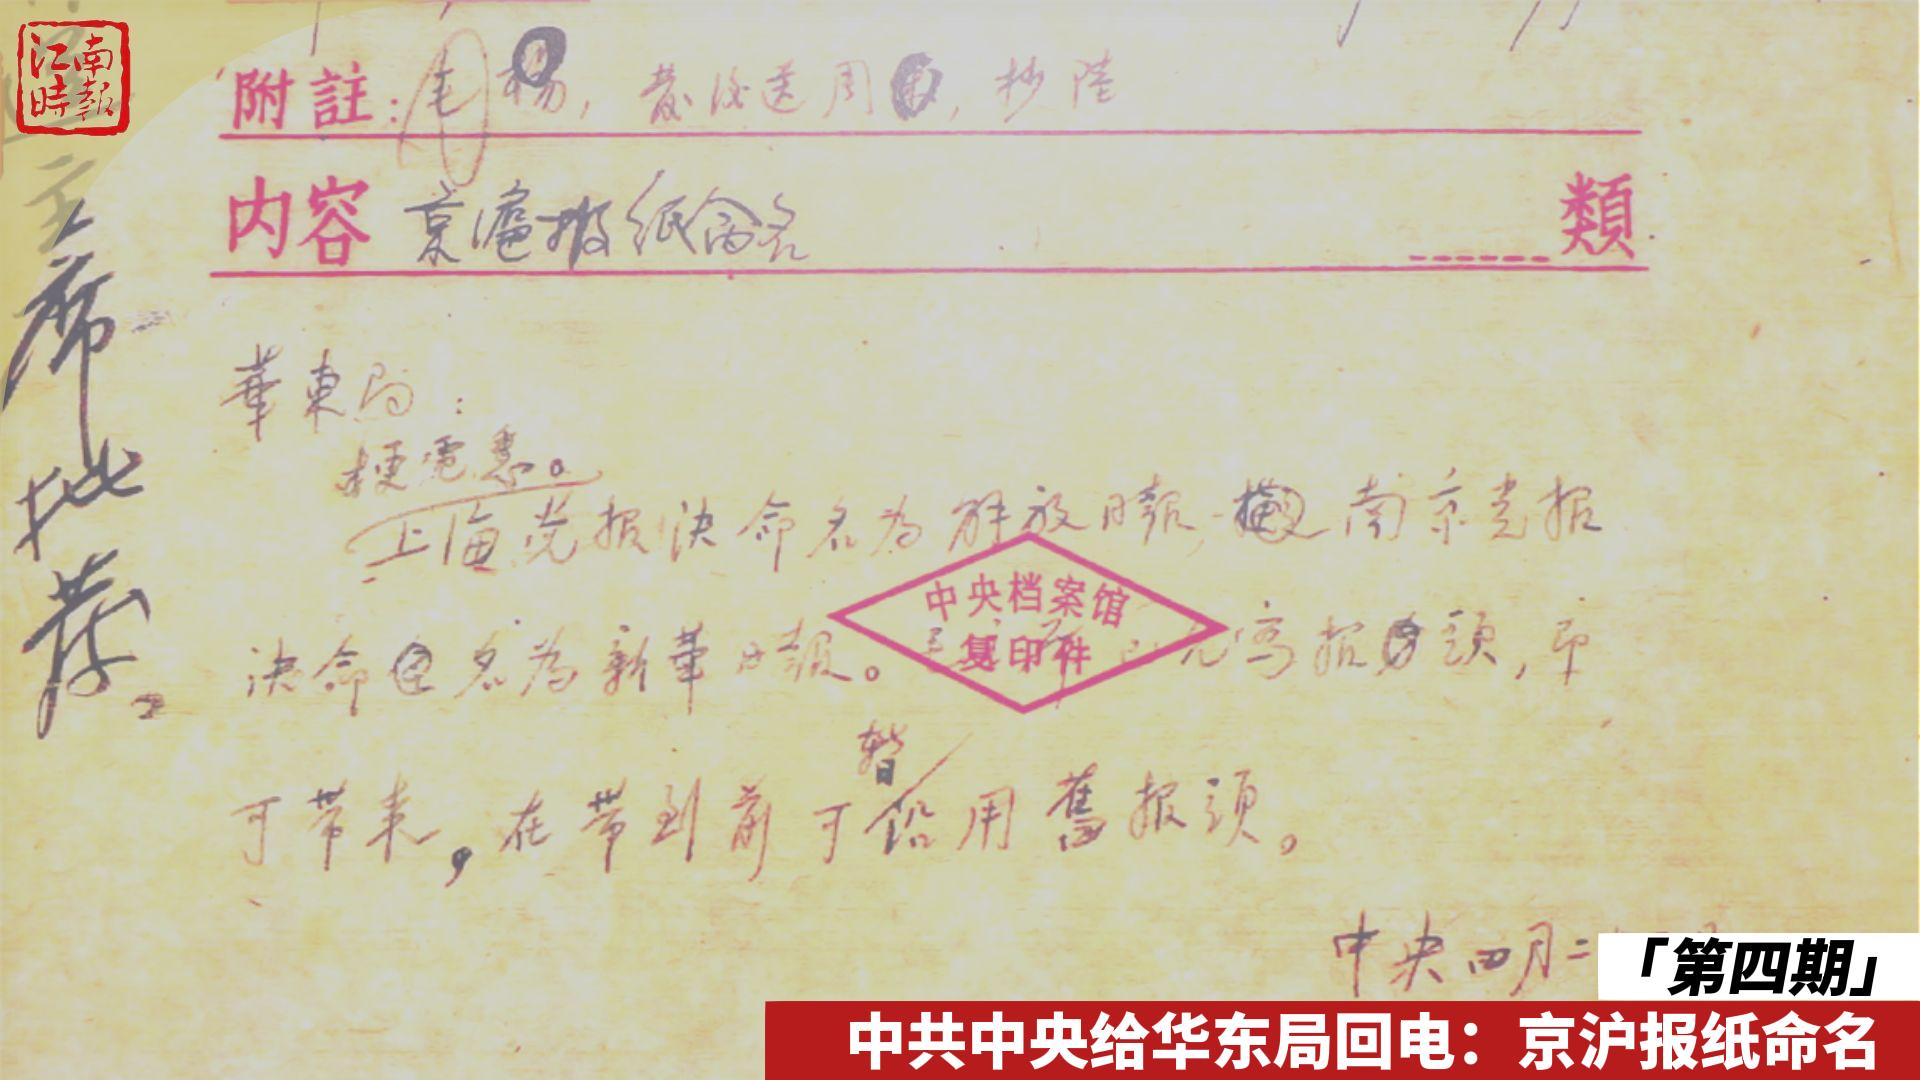 江南
時報
主席批荐。
附註：毛 楊，發後送周，抄陸
内容 京滬报纸命名 類
華東局：
梗電悉。
上海党报决命名为解放日報，南京党报
决命名为新華日報。 报頭，即
中央档案馆
复印件
可带来，在带到前可暂沿用舊报頭。
中央四月二
「第四期」
中共中央给华东局回电：京沪报纸命名